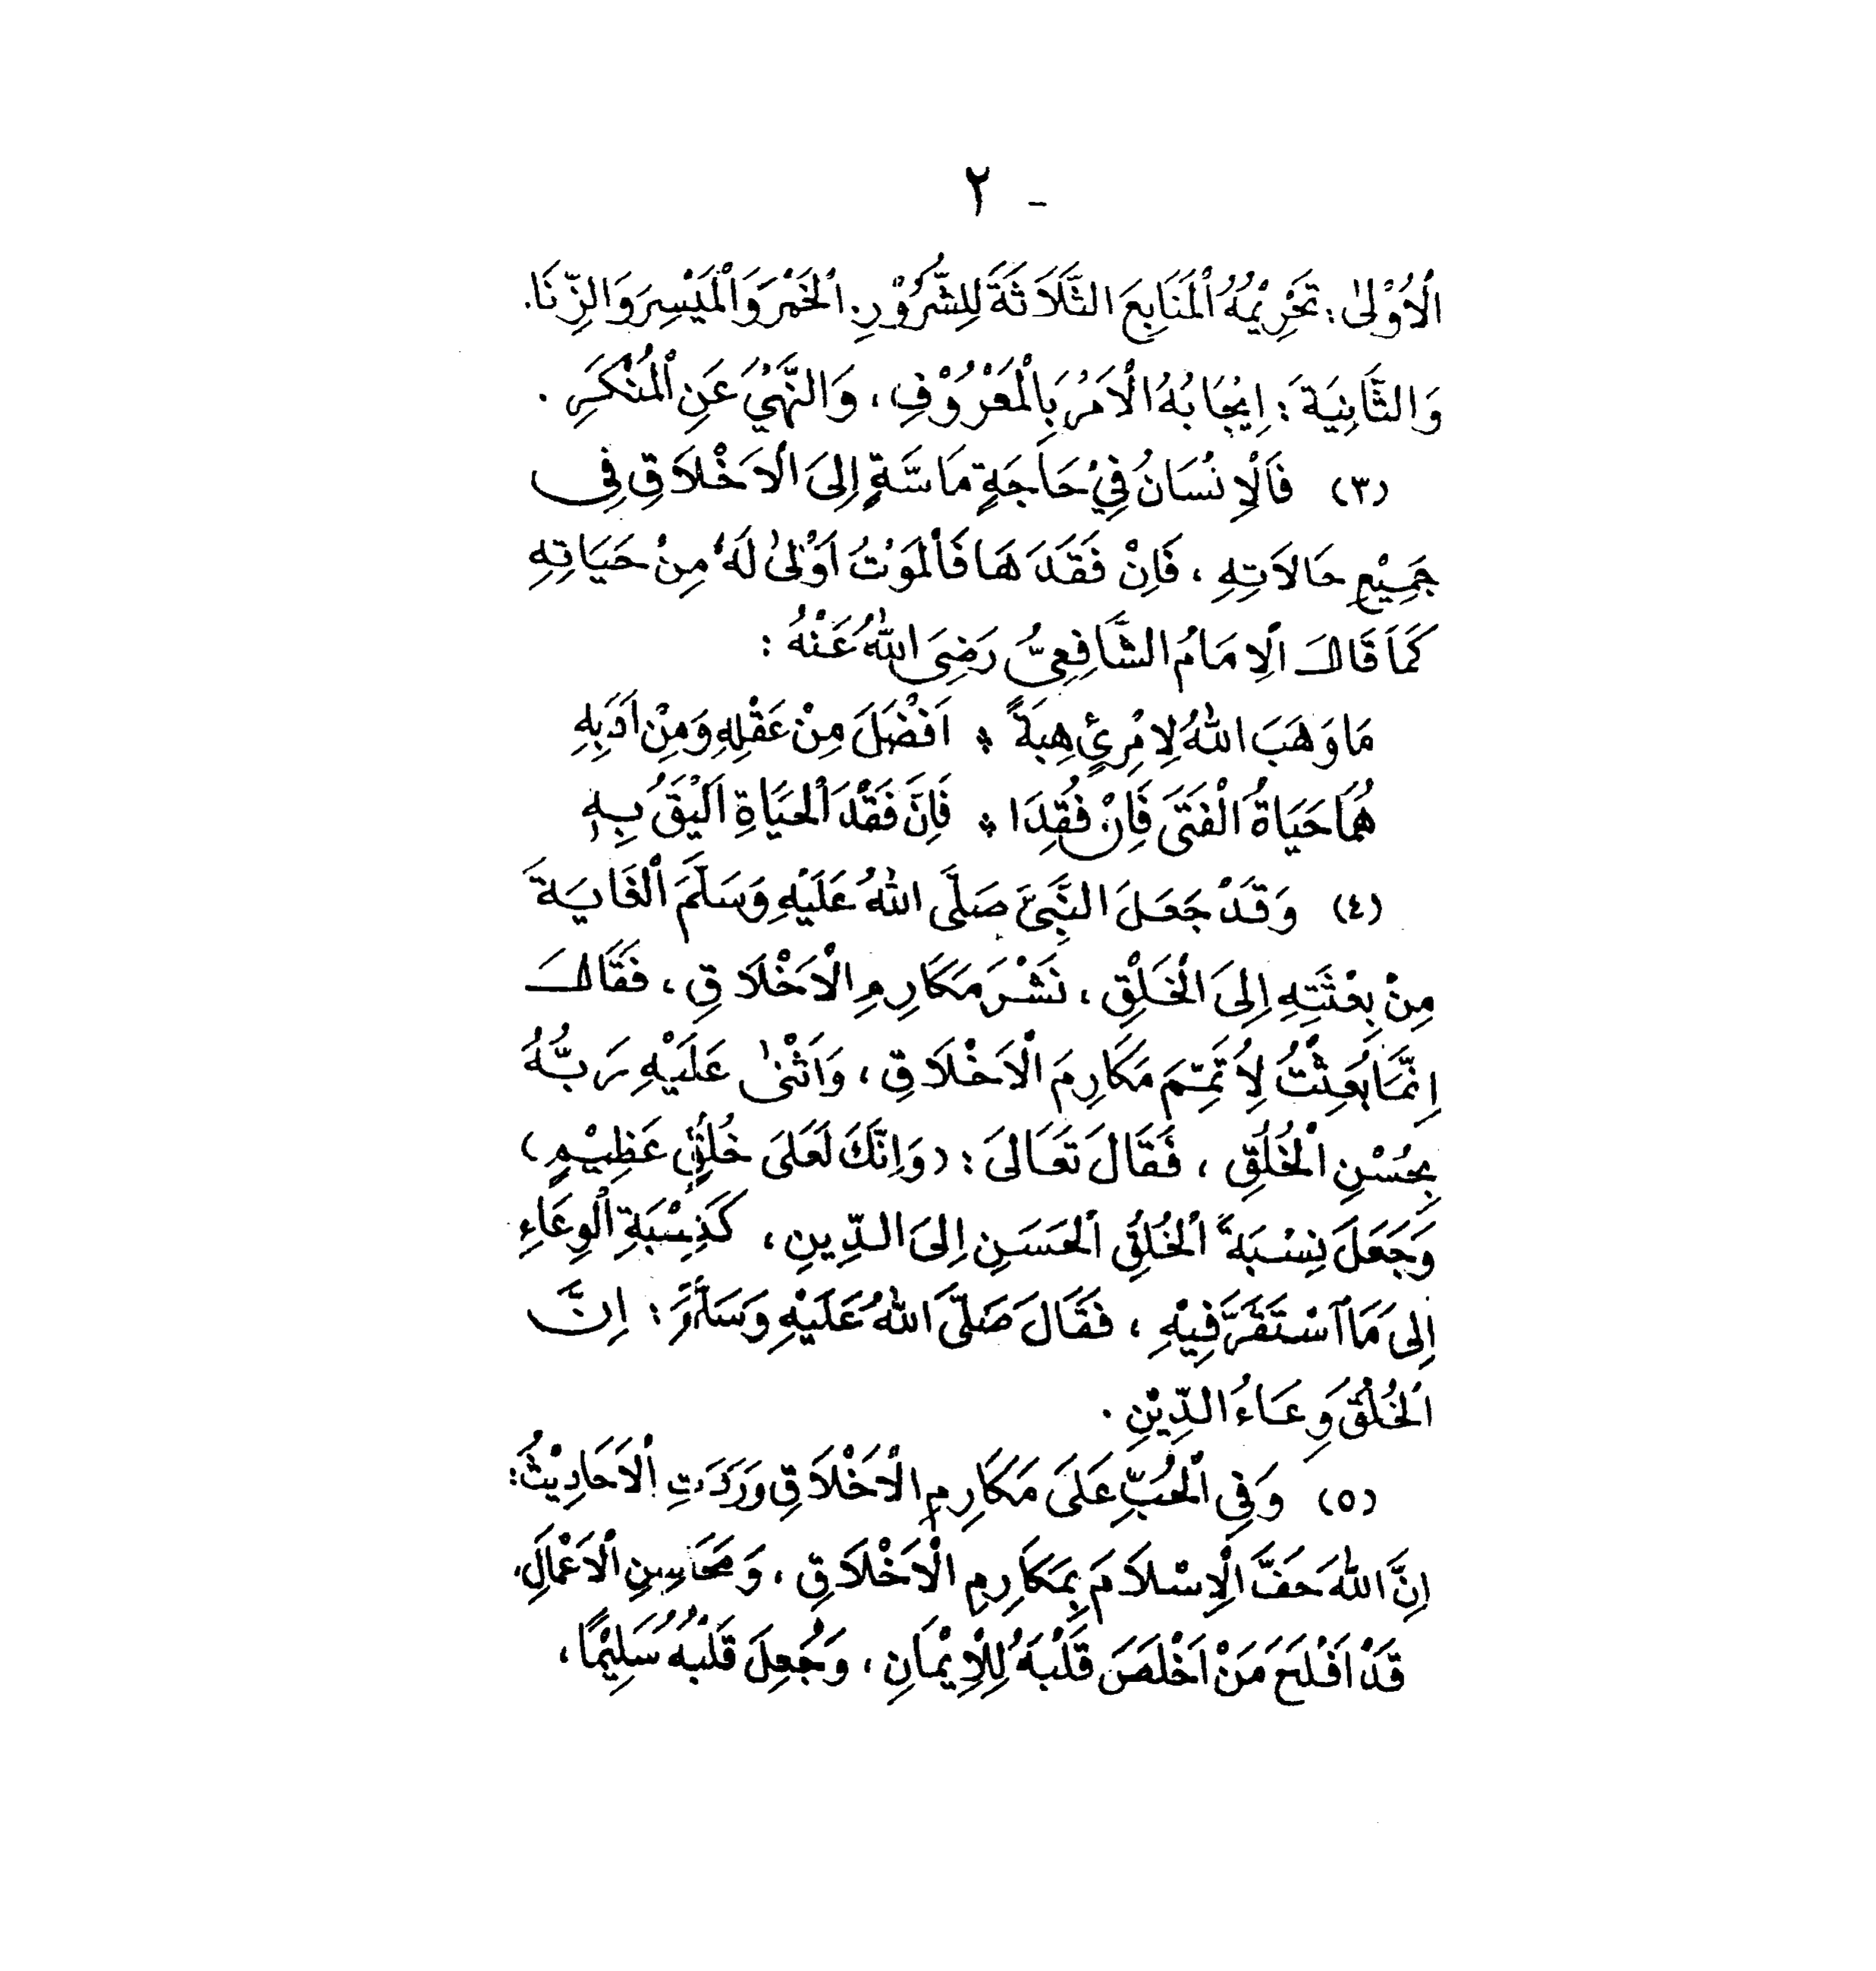 - ٢
اَلْاُوْلىٰ : تَحْرِيْمُهُ الْمَنَابِعَ الثَّلَاثَةَ لِلشُّرُوْرِ. اَلْخَمْرَ وَالْمَيْسِرَ وَالزِّنَا.
وَالثَّانِيَةَ : اِيْجَابُهُ الْاَمْرَ بِالْمَعْرُوْفِ ، وَالنَّهْيَ عَنِ الْمُنْكَرِ .
(٣) فَالْاِنْسَانُ فِيْ حَاجَةٍ مَاسَّةٍ اِلَى الْاَخْلَاقِ فِى
جَمِيْعِ حَالَاتِهِ ، فَاِنْ فَقَدَهَا فَالْمَوْتُ اَوْلىٰ لَهُ مِنْ حَيَاتِهِ
كَمَا قَالَ اَلْاِمَامُ الشَّافِعِيُّ رَضِىَ اللّٰهُ عَنْهُ :
مَا وَهَبَ اللّٰهُ لِامْرِئٍ هِبَةً * اَفْضَلَ مِنْ عَقْلِهِ وَمِنْ اَدَبِهِ
هُمَا حَيَاةُ الْفَتَى فَاِنْ فُقِدَا * فَاِنَّ فَقْدَ الْحَيَاةِ اَلْيَقُ بِهِ
(٤) وَقَدْ جَعَلَ النَّبِيَّ صَلَّى اللّٰهُ عَلَيْهِ وَسَلَّمَ الْغَايَةَ
مِنْ بِعْثَتِهِ اِلَى الْخَلْقِ ، نَشْرَ مَكَارِمِ الْاَخْلَاقِ ، فَقَالَ
اِنَّمَا بُعِثْتُ لِاُتَمِّمَ مَكَارِمَ الْاَخْلَاقِ ، وَاَثْنىٰ عَلَيْهِ رَبُّهُ
بِحُسْنِ الْخُلُقِ ، فَقَالَ تَعَالَى : (وَاِنَّكَ لَعَلَى خُلُقٍ عَظِيْمٍ)
وَجَعَلَ نِسْبَةَ الْخُلُقِ الْحَسَنِ اِلَى الدِّينِ ، كَنِسْبَةِ الْوِعَاءِ
اِلَى مَا اسْتَقَرَّ فِيْهِ ، فَقَالَ صَلَّى اللّٰهُ عَلَيْهِ وَسَلَّمَ : اِنَّ
الْخُلُقَ وِعَاءُ الدِّيْنِ .
(٥) وَفِى الْحُبِّ عَلَى مَكَارِمِ الْاَخْلَاقِ وَرَدَتِ الْاَحَادِيْثُ :
اِنَّ اللّٰهَ حَفَّ الْاِسْلَامَ بِمَكَارِمِ الْاَخْلَاقِ ، وَمَحَاسِنِ الْاَعْمَالِ،
قَدْ اَفْلَحَ مَنْ اَخْلَصَ قَلْبَهُ لِلْاِيْمَانِ ، وَجُعِلَ قَلْبُهُ سَلِيْمًا ،